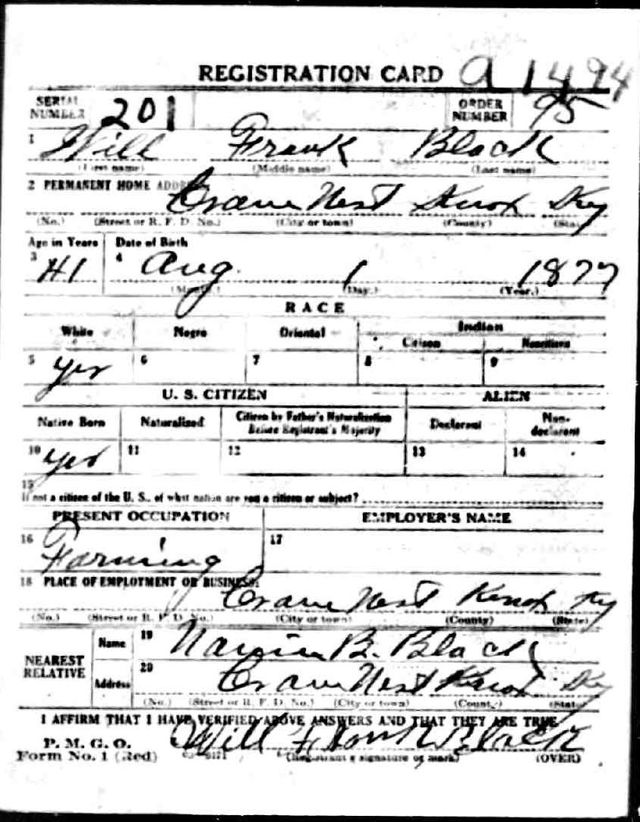 REGISTRATION CARD a 1494
SERIAL NUMBER 201 ORDER NUMBER 95
1 Will Frank Black
(First name) (Middle name) (Last name)
2 PERMANENT HOME ADDRESS Crane Nest Knox Ky
(No.) (Street or R. F. D. No.) (City or town) (County) (State)
Age in Years Date of Birth
3 41 4 Aug. 1 1877
(Month.) (Day.) (Year.)
RACE
White Negro Oriental Indian
Citizen Noncitizen
5 yes 6 7 8 9
U. S. CITIZEN ALIEN
Native Born Naturalized Citizen by Father's Naturalization Before Registrant's Majority Declarant Non-declarant
10 yes 11 12 13 14
15
If not a citizen of the U. S., of what nation are you a citizen or subject?
PRESENT OCCUPATION EMPLOYER'S NAME
16 Farming 17
18 PLACE OF EMPLOYMENT OR BUSINESS:
Crane Nest Knox Ky
(No.) (Street or R. F. D. No.) (City or town) (County) (State)
NEAREST RELATIVE
Name 19 B. Black
Address 20 Crane Nest Knox Ky
(No.) (Street or R. F. D. No.) (City or town) (County) (State)
I AFFIRM THAT I HAVE VERIFIED ABOVE ANSWERS AND THAT THEY ARE TRUE
P. M. G. O.
Form No. 1 (Red) Will Frank Black
(Registrant's signature or mark) (OVER)